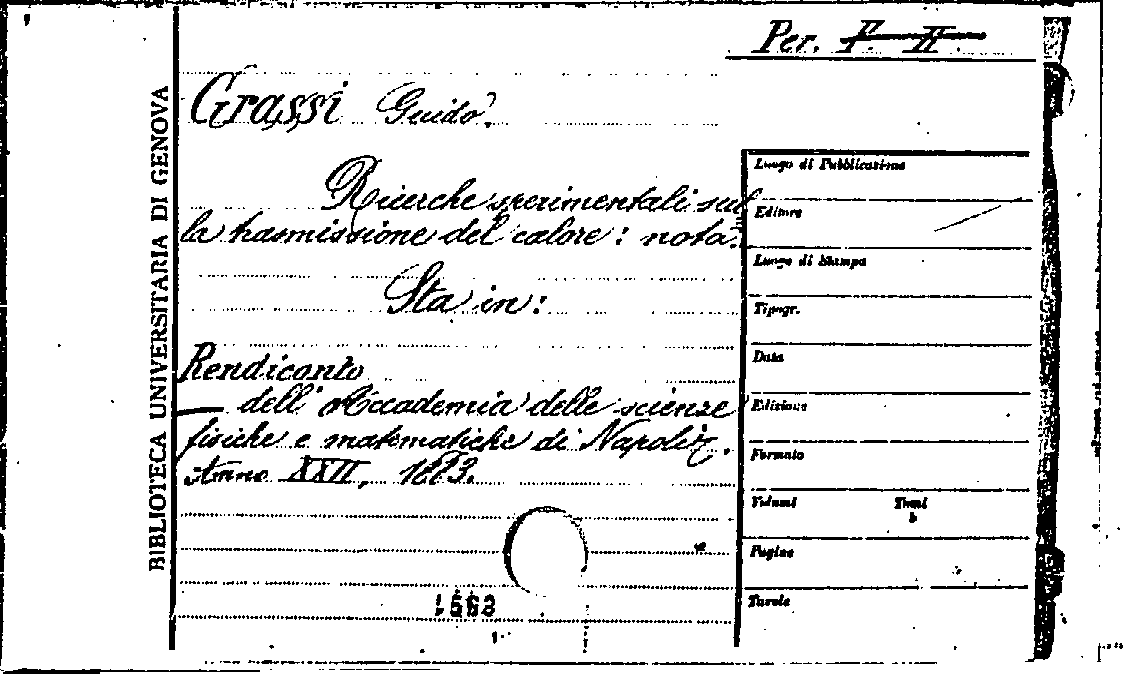 Per. F. II.
BIBLIOTECA UNIVERSITARIA DI GENOVA
Grassi Guido.
Ricerche sperimentali sul
la trasmissione del calore: nota.
Sta in:
Rendiconto
dell'Accademia delle scienze
fisiche e matematiche di Napoli.
Anno XXII, 1883.
Luogo di Pubblicazione
Editore
Luogo di Stampa
Tipogr.
Data
Edizione
Formato
Volumi Tomi
Pagine
Tavole